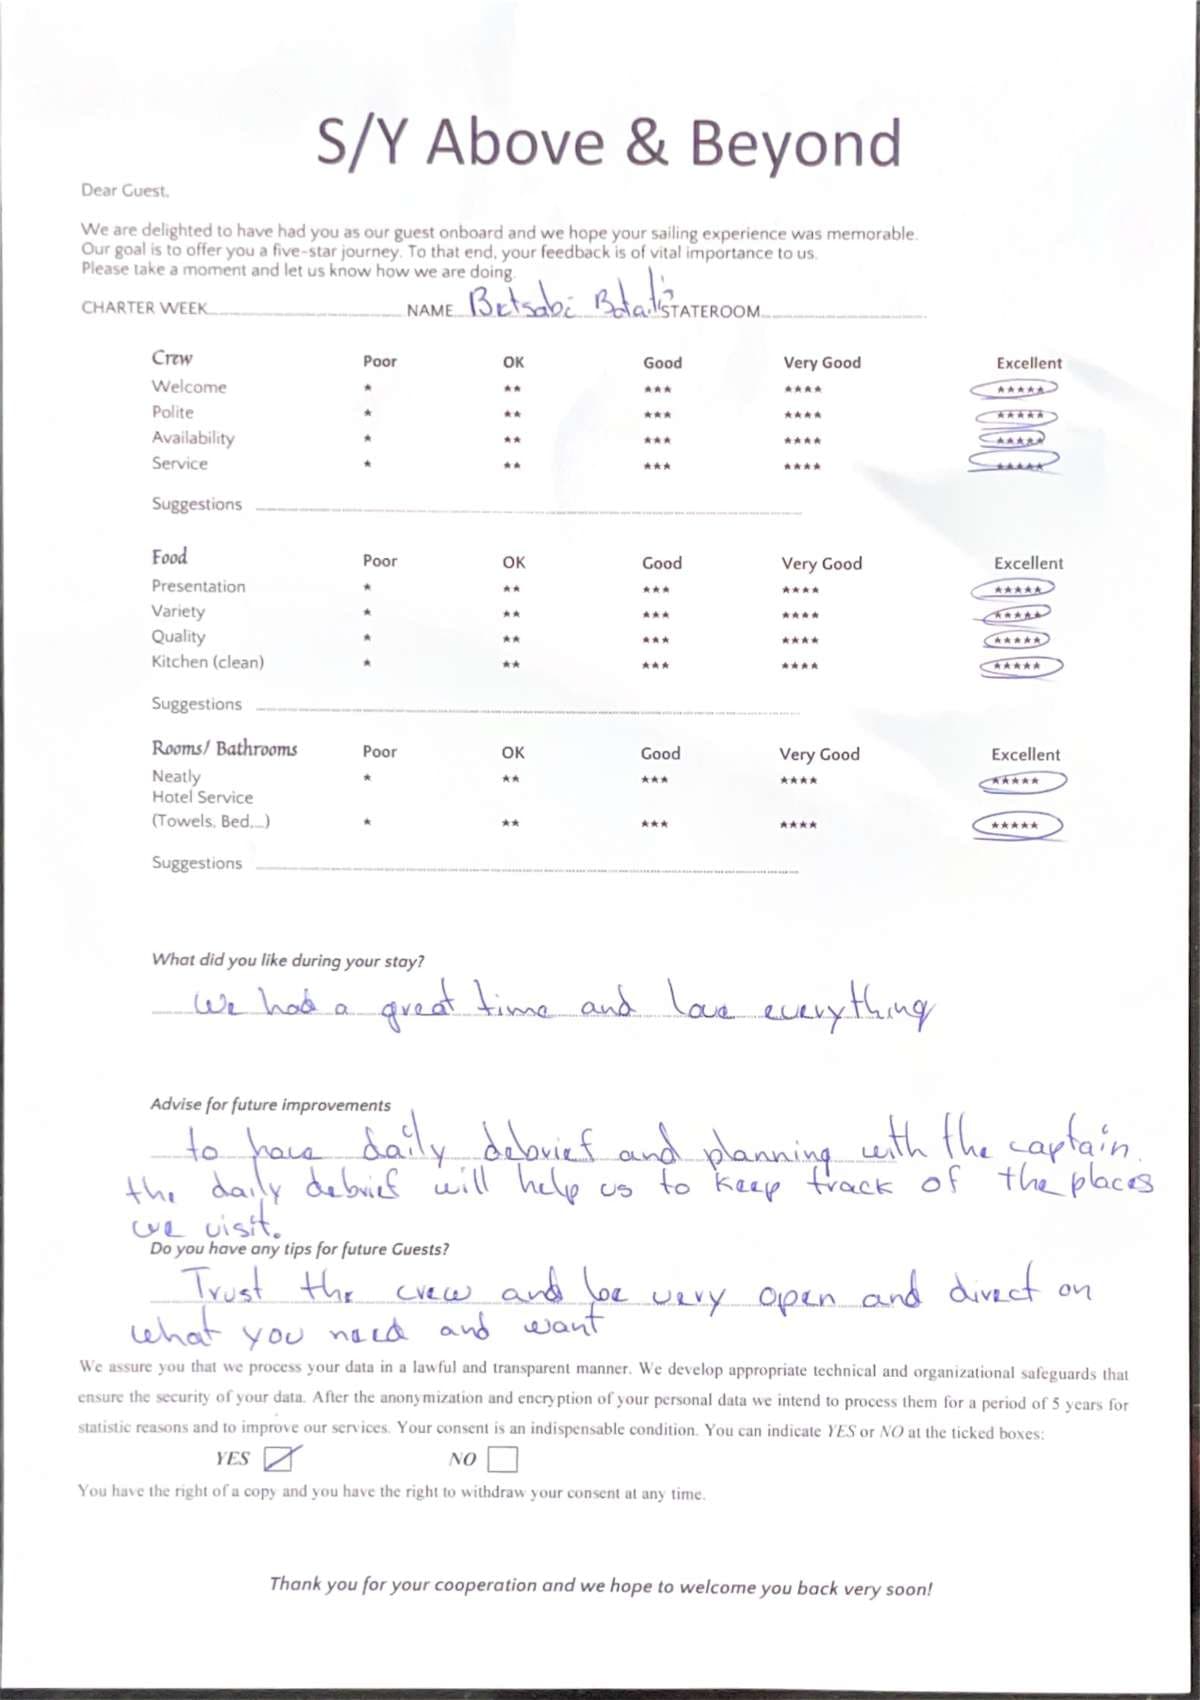 S/Y Above & Beyond
Dear Guest,
We are delighted to have had you as our guest onboard and we hope your sailing experience was memorable.
Our goal is to offer you a five-star journey. To that end, your feedback is of vital importance to us.
Please take a moment and let us know how we are doing.
CHARTER WEEK NAME Betsabe STATEROOM
Crew Poor OK Good Very Good Excellent
Welcome * ** *** **** *****
Polite * ** *** **** *****
Availability * ** *** **** *****
Service * ** *** **** *****
Suggestions
Food Poor OK Good Very Good Excellent
Presentation * ** *** **** *****
Variety * ** *** **** *****
Quality * ** *** **** *****
Kitchen (clean) * ** *** **** *****
Suggestions
Rooms/ Bathrooms Poor OK Good Very Good Excellent
Neatly * ** *** **** *****
Hotel Service
(Towels, Bed,...) * ** *** **** *****
Suggestions
What did you like during your stay?
We had a great time and love everything
Advise for future improvements
to have daily debrief and planning with the captain.
the daily debrief will help us to keep track of the places
we visit.
Do you have any tips for future Guests?
Trust the crew and be very open and direct on
what you need and want
We assure you that we process your data in a lawful and transparent manner. We develop appropriate technical and organizational safeguards that
ensure the security of your data. After the anonymization and encryption of your personal data we intend to process them for a period of 5 years for
statistic reasons and to improve our services. Your consent is an indispensable condition. You can indicate YES or NO at the ticked boxes:
YES NO
You have the right of a copy and you have the right to withdraw your consent at any time.
Thank you for your cooperation and we hope to welcome you back very soon!